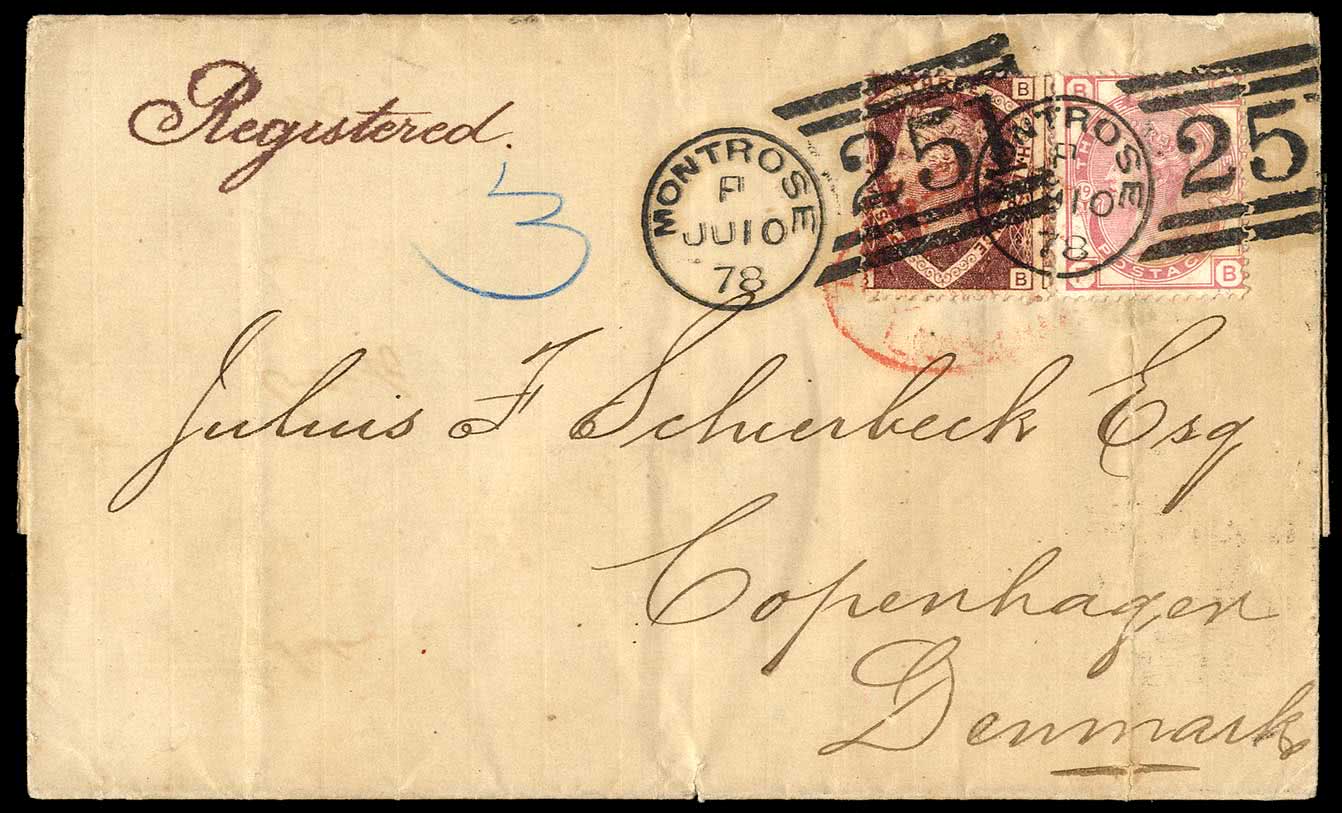 Registered.
3
MONTROSE
JU 10
78
25
MONTROSE
10
78
25
THREE
B
B
B
B
POSTAG
Julius F Schierbeck Esq
Copenhagen
Denmark